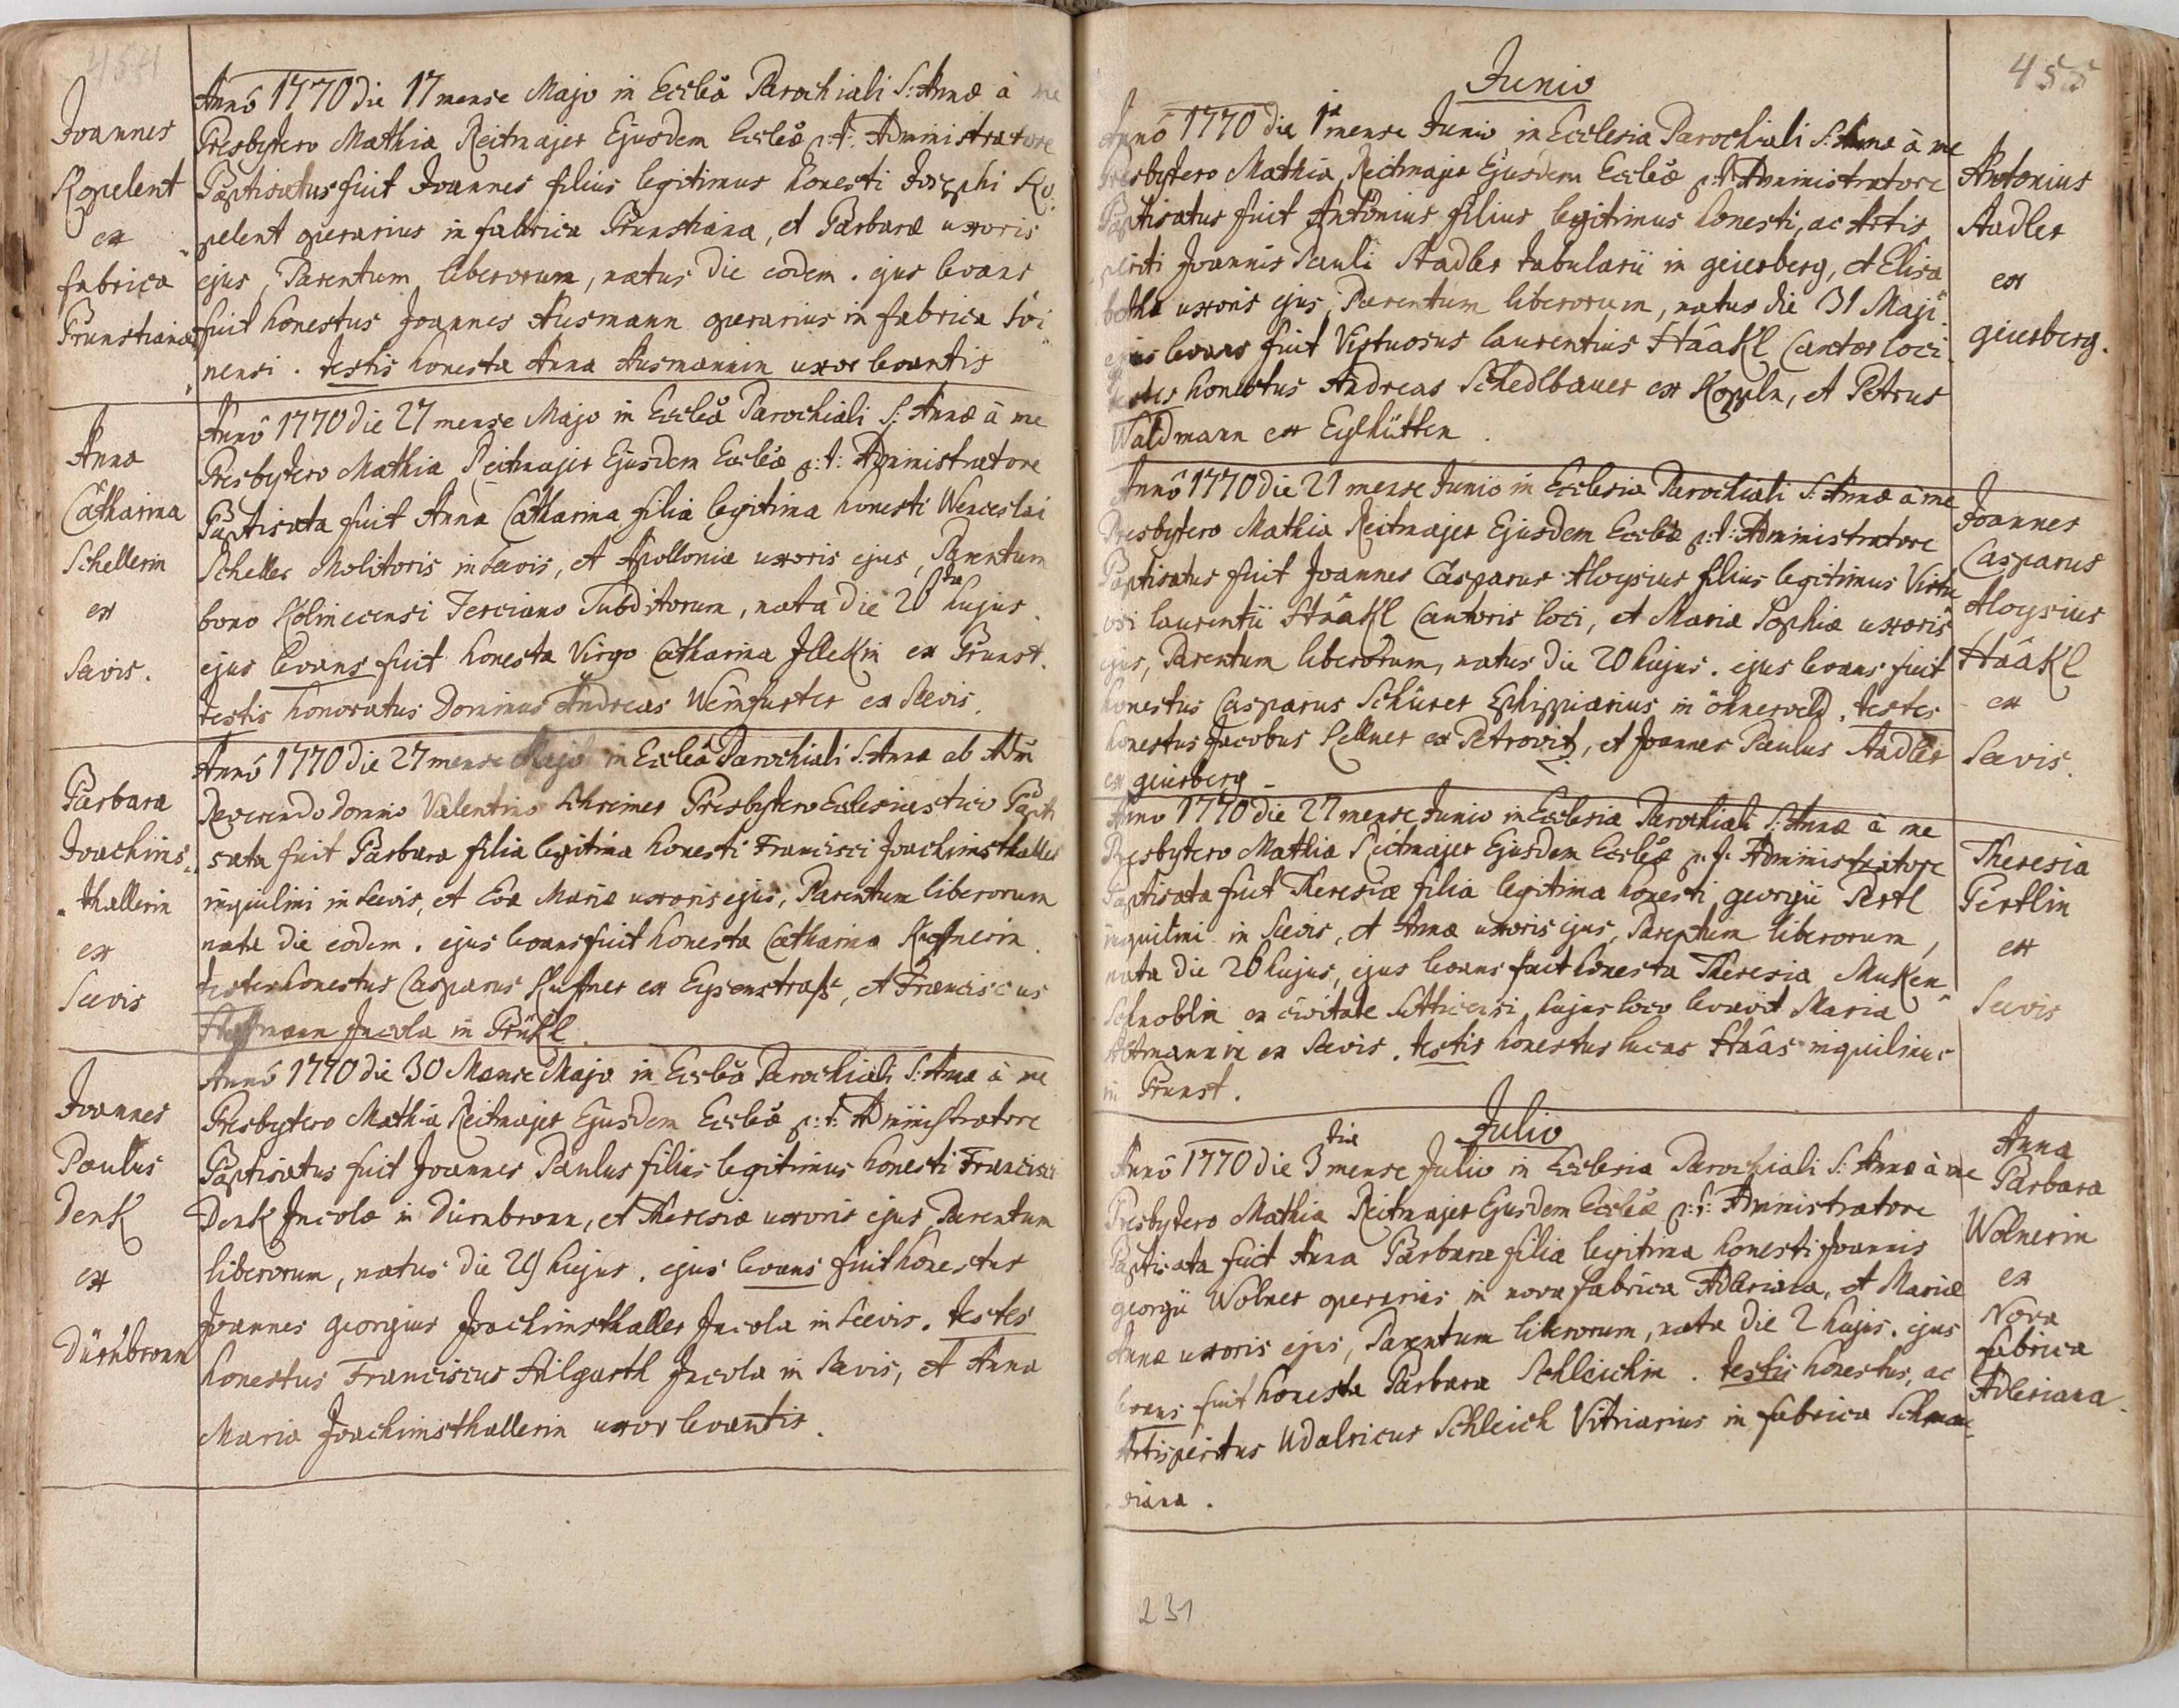 454
Joannes
Kopelent
ex
fabrica
Prunstiana
Annô 1770 die 17 mense Majo in Eccleâ Parochiali S: Annæ à me
Presbytero Mathia Reitmajer Ejusdem Eccleæ p: t: Administratore
Baptisatus fuit Joannes filius legitimus honesti Josephi Ko„
pelent operarius in fabrica Prunstiana, et Barbaræ uxoris
ejus, Parentum liberorum, natus die eodem. ejus levans
fuit honestus Joannes Ausmann operarius in fabrica
nensi. testis honesta Anna Ausmannin uxor levantis
Anna
Catharina
Schellerin
ex
Seevis.
Annô 1770 die 27 mense Majo in Eccleâ Parochiali S: Annæ à me
Presbytero Mathia Reitmajer Ejusdem Eccleæ p: t: Administratore
Baptisata fuit Anna Catharina filia legitima honesti Wenceslai
Scheller Molitoris in Seevis, et Apolloniæ uxoris ejus, Parentum
bono Kolinecensi Terciano Subditorum, nata die 26ta hujus.
ejus levans fuit honesta Virgo Catharina Jllekin ex Prunst.
testis honoratus Dominus Andreas Weinfurter ex Seevis.
Barbara
Joachims„
„thallerin
ex
Seevis
Annô 1770 die 27 mense Majo in Eccleâ Parochiali S: Annæ ab Adm
Reverendo Domino Valentino Schreiner Presbytero Ecclesiastico Bapti
sata fuit Barbara filia legitima honesti Francisci Joachimsthaller
inquilini in Seevis, et Evæ Mariæ uxoris ejus, Parentum liberorum
nata die eodem. ejus levans fuit honesta Catharina Kuffnerin.
testes honestus Casparus Kuffner ex Eysenstraß, et Franciscus
Hoffmann Jncola in Brükl.
Joannes
Paulus
Denk
ex
Dürnbronn
Annô 1770 die 30 Mense Majo in Eccleâ Parochiali S: Annæ à me
Presbytero Mathia Reitmajer Ejusdem Eccleæ p: t: Administratore
Baptisatus fuit Joannes Paulus filius legitimus honesti Francisci
Denk Jncolæ in Dürnbronn, et Theresiæ uxoris ejus, Parentum
liberorum, natus die 29 hujus. ejus levans fuit honestus
Joannes georgius Joachimsthaller Jncola in Seevis. testes
honestus Franciscus Ailgarth Jncola in Seevis, et Anna
Maria Joachimsthallerin uxor levantis.
455
Junio
Annô 1770 die 1a mense Junio in Ecclesia Parochiali S: Annæ à me
Presbytero Mathia Reitmajer Ejusdem Eccleæ p: t: Administratore
Baptisatus fuit Antonius filius legitimus honesti, ac Artis
periti Joannis Pauli Stadler tabularii in geiersberg, et Elisa„
bethæ uxoris ejus, Parentum liberorum, natus die 31 Maji.
ejus levans fuit Virtuosus laurentius Hâakl Cantor loci.
testes honestus Andreas Schedlbauer ex Koppln, et Petrus
Waldmann ex Eylhütten.
Antonius
Stadler
ex
geiersberg.
Annô 1770 die 21 mense Junio in Ecclesia Parochiali S: Annæ à me
Presbytero Mathia Reitmajer Ejusdem Eccleæ p: t: Administratore
Baptisatus fuit Joannes Casparus Aloysius filius legitimus Virtu
osi laurentii Hâakl Cantoris loci, et Mariæ Sophiæ uxoris
ejus, Parentum liberorum, natus die 20 hujus. ejus levans fuit
honestus Casparus Schürer Ephippiarius in önnerveld. testes
honestus Jacobus Pellner ex Petrovitz, et Joannes Paulus Stadler
ex geiersberg
Joannes
Casparus
Aloysius
Hâakl
ex
Seevis.
Anno 1770 die 27 mense Junio in Ecclesia Parochiali S: Annæ à me
Presbytero Mathia Reitmajer Ejusdem Eccleæ p: t: Administratore
Baptisata fuit Theresia filia legitima honesti georgii Pertl
inquilini in Seevis, et Annæ uxoris ejus, Parentum liberorum,
nata die 26 hujus, ejus levans fuit honesta Theresia Muken„
Schnoblin ex civitate Sutticensi, hujus loco levavit Maria
Altmannin ex Seevis. testis honestus lucas Hâas inquilinus
in Prunst.
Theresia
Pertlin
ex
Seevis
Julio
Annô 1770 die 3tia mense Julio in Ecclesia Parochiali S: Annæ à me
Presbytero Mathia Reitmajer Ejusdem Eccleæ p: t: Administratore
Baptisata fuit Anna Barbara filia legitima honesti Joannis
georgii Wolner operarius in nova fabrica Adleriana, et Mariæ
Annæ uxoris ejus, Parentum liberorum, nata die 2 hujus. ejus
levans fuit honesta Barbara Schleichin. testis honestus, ac
Artisperitus Udalricus Schleich Vitriarius in fabrica Schmau„
siana.
Anna
Barbara
Wolnerin
ex
Nova
fabrica
Adleriana.
231